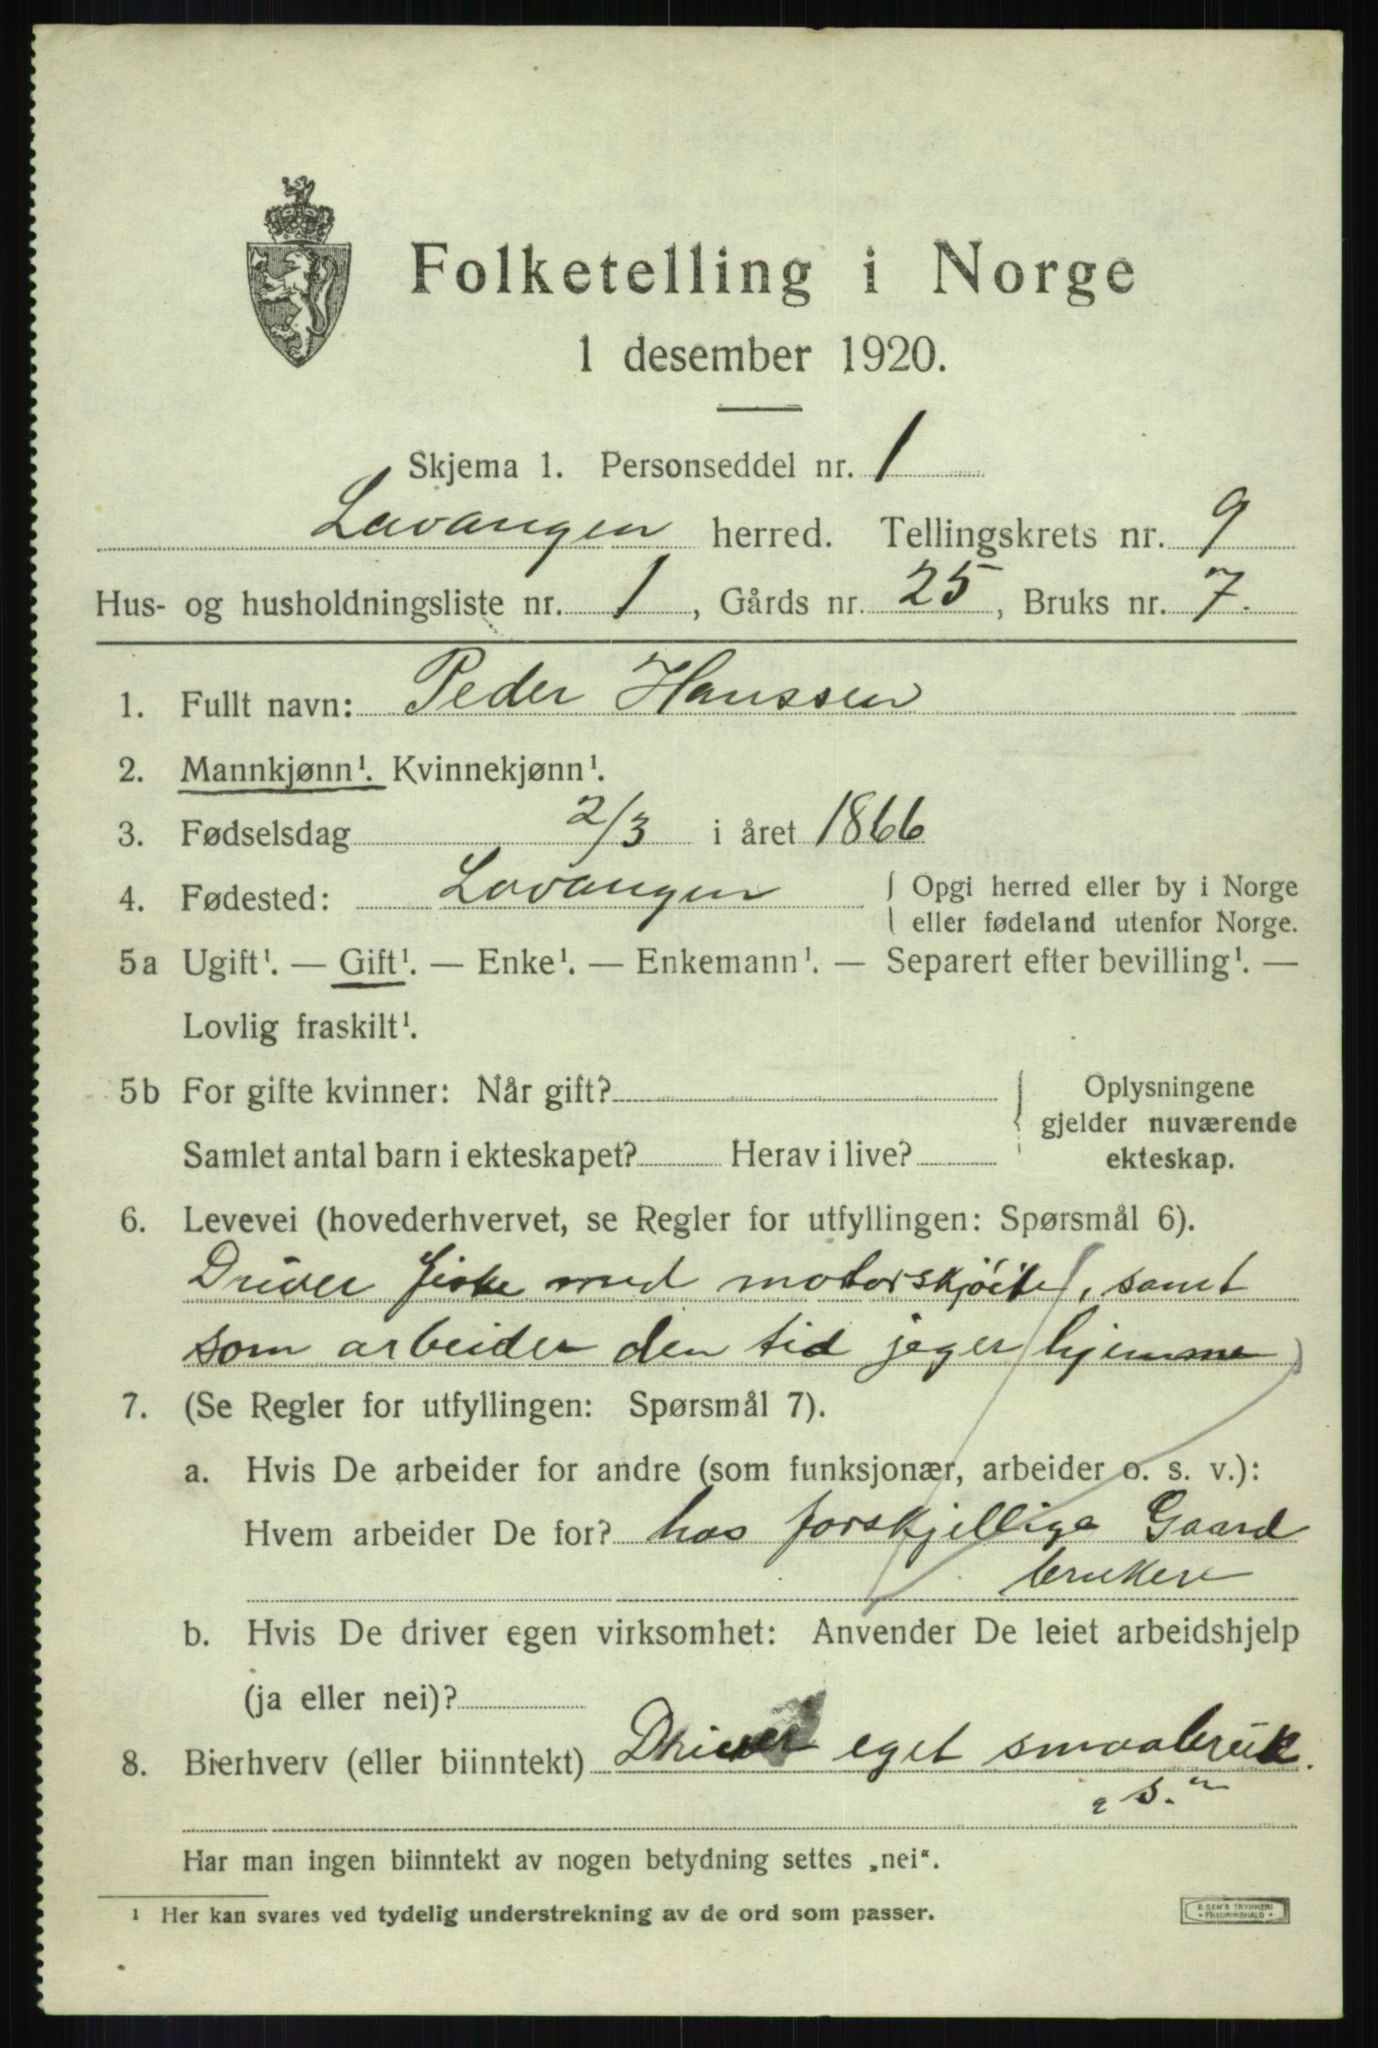 Folketelling i Norge
1 desember 1920.
Skjema 1. Personseddel nr. 1
Lavangen herred. Tellingskrets nr. 9
Hus- og husholdningsliste nr. 1, Gårds nr. 25, Bruks nr. 7.
1. Fullt navn: Peder Hanssen
2. Mannkjønn¹. Kvinnekjønn¹.
3. Fødselsdag 2/3 i året 1866
4. Fødested: Lavangen { Opgi herred eller by i Norge
eller fødeland utenfor Norge.
5a Ugift¹. — Gift¹. — Enke¹. — Enkemann¹. — Separert efter bevilling¹. —
Lovlig fraskilt¹.
5b For gifte kvinner: Når gift?
Samlet antal barn i ekteskapet? Herav i live?
Oplysningene
gjelder nuværende
ekteskap.
6. Levevei (hovederhvervet, se Regler for utfyllingen: Spørsmål 6).
Driver fiske med motorskjöite, samt
som arbeider den tid jeg er hjemme
7. (Se Regler for utfyllingen: Spørsmål 7).
a. Hvis De arbeider for andre (som funksjonær, arbeider o. s. v.):
Hvem arbeider De for? hos forskjellige Gaard
brukere
b. Hvis De driver egen virksomhet: Anvender De leiet arbeidshjelp
(ja eller nei)?
8. Bierhverv (eller biinntekt) Driver eget smaabruk.
s.
Har man ingen biinntekt av nogen betydning settes „nei“.
¹ Her kan svares ved tydelig understrekning av de ord som passer.